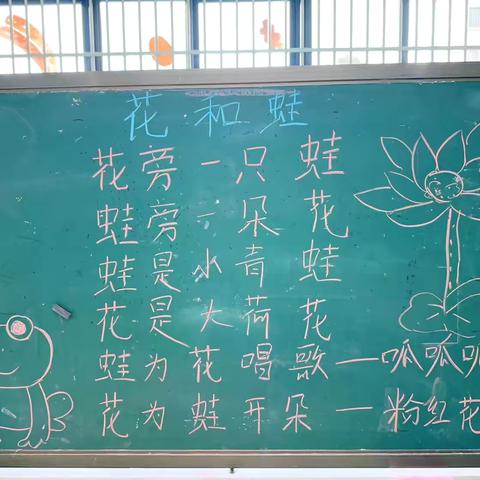 花和蛙
花旁一只蛙
蛙旁一朵花
蛙是小青蛙
花是大荷花
蛙为花唱歌—呱呱呱
花为蛙开朵—粉红花